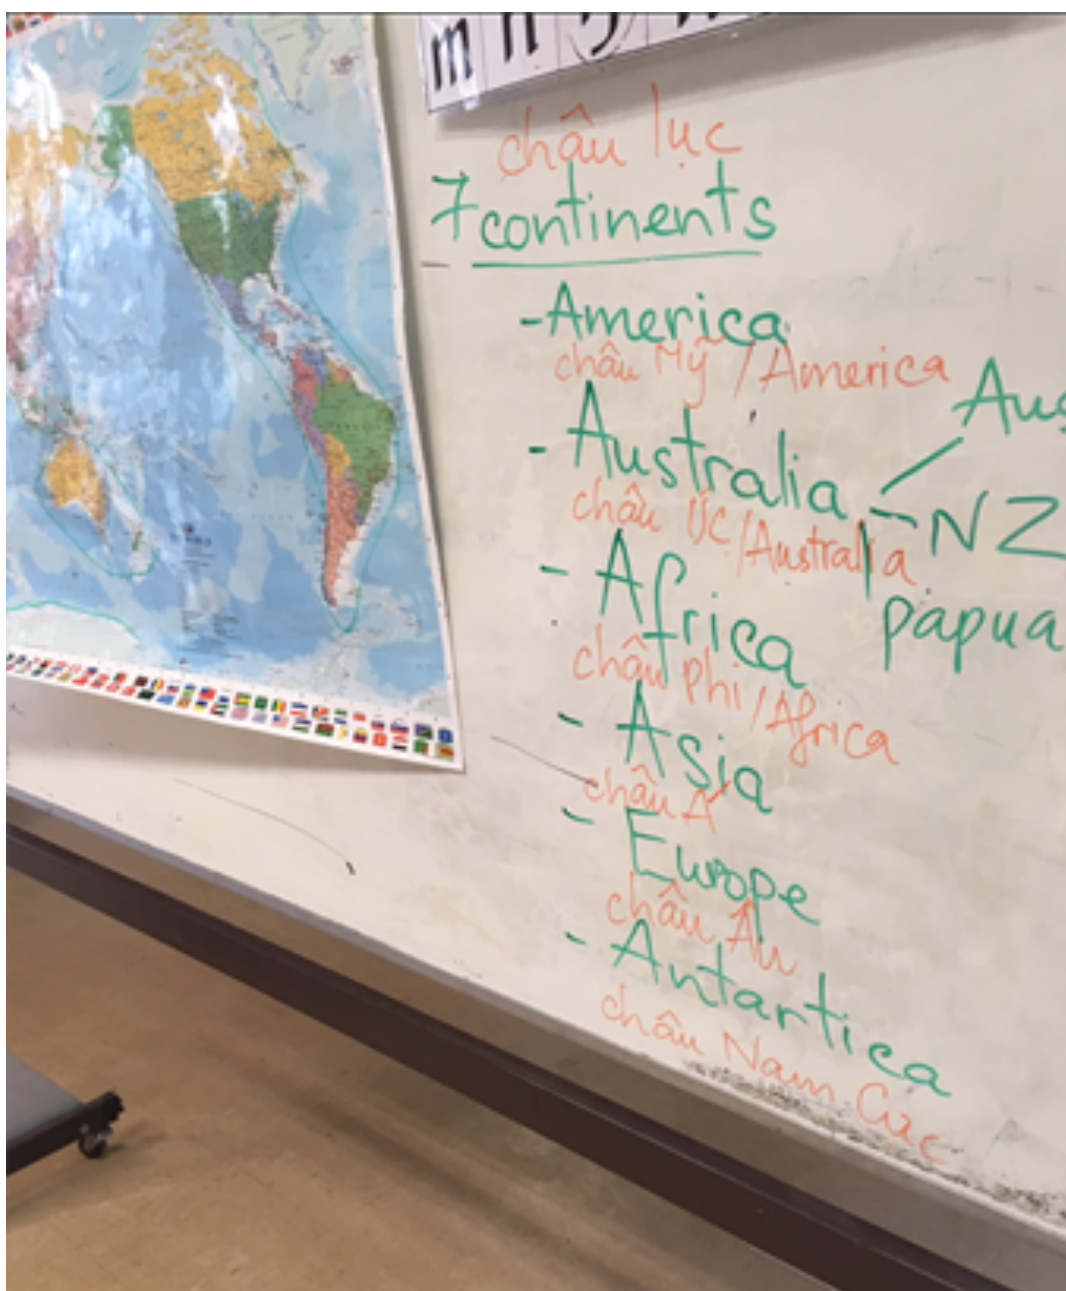 m n
châu lục
7 continents
- America
châu Mỹ / America
- Australia - NZ
châu ÚC / Australia
papua
- Africa
châu Phi / Africa
- Asia
châu Á
- Europe
châu Âu
- Antartica
châu Nam Cực